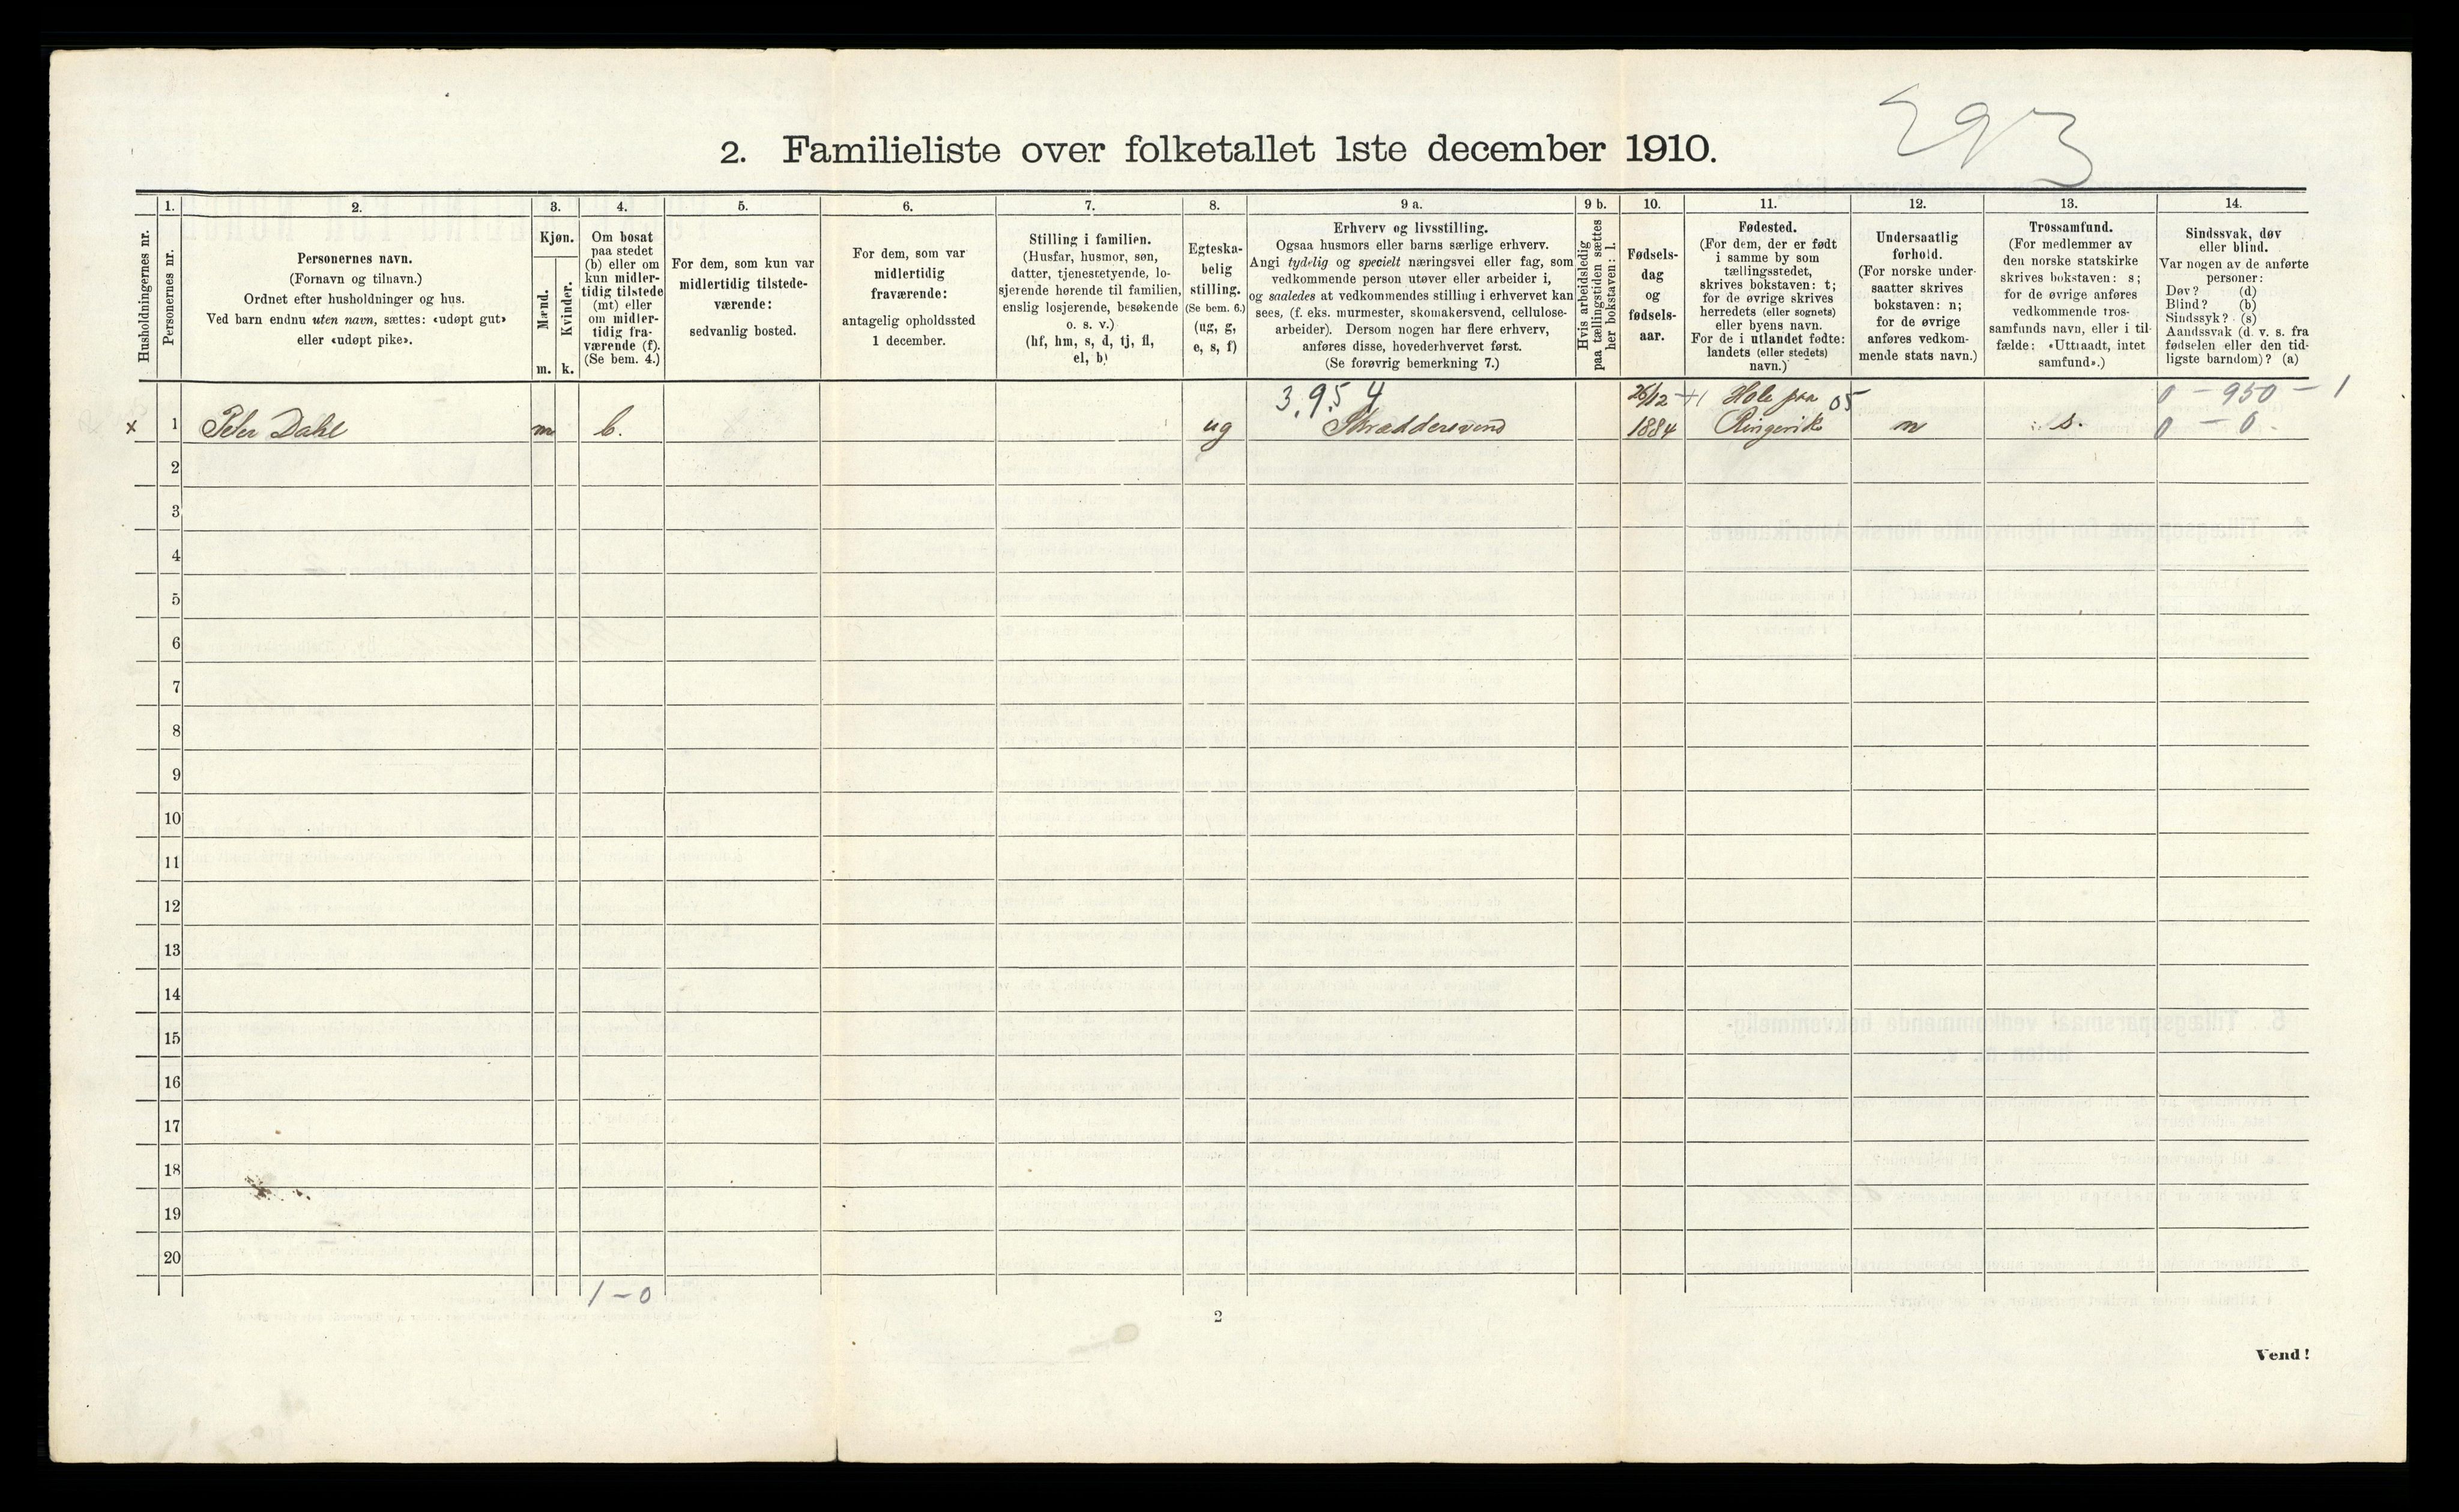 293
2. Familieliste over folketallet 1ste december 1910.
Husholdningernes nr.
1.
Personernes nr.
2.
Personernes navn.
(Fornavn og tilnavn.)
Ordnet efter husholdninger og hus.
Ved barn endnu uten navn, sættes: «udøpt gut»
eller «udøpt pike».
3.
Kjøn.
Mænd.
Kvinder.
m. k.
4.
Om bosat
paa stedet
(b) eller om
kun midler-
tidig tilstede
(mt) eller
om midler-
tidig fra-
værende (f).
(Se bem. 4.)
5.
For dem, som kun var
midlertidig tilstede-
værende:
sedvanlig bosted.
6.
For dem, som var
midlertidig
fraværende:
antagelig opholdssted
1 december.
7.
Stilling i familien.
(Husfar, husmor, søn,
datter, tjenestetyende, lo-
sjerende hørende til familien,
enslig losjerende, besøkende
o. s. v.)
(hf, hm, s, d, tj, fl,
el, b)
8.
Egteska-
belig
stilling.
(Se bem. 6.)
(ug, g,
e, s, f)
9 a.
Erhverv og livsstilling.
Ogsaa husmors eller barns særlige erhverv.
Angi tydelig og specielt næringsvei eller fag, som
vedkommende person utøver eller arbeider i,
og saaledes at vedkommendes stilling i erhvervet kan
sees, (f. eks. murmester, skomakersvend, cellulose-
arbeider). Dersom nogen har flere erhverv,
anføres disse, hovederhvervet først.
(Se forøvrig bemerkning 7.)
9 b.
Hvis arbeidsledig
paa tællingstiden sættes
her bokstaven: l.
10.
Fødsels-
dag
og
fødsels-
aar.
11.
Fødested.
(For dem, der er født
i samme by som
tællingsstedet,
skrives bokstaven: t;
for de øvrige skrives
herredets (eller sognets)
eller byens navn.
For de i utlandet fødte:
landets (eller stedets)
navn.)
12.
Undersaatlig
forhold.
(For norske under-
saatter skrives
bokstaven: n;
for de øvrige
anføres vedkom-
mende stats navn.)
13.
Trossamfund.
(For medlemmer av
den norske statskirke
skrives bokstaven: s;
for de øvrige anføres
vedkommende tros-
samfunds navn, eller i til-
fælde: «Uttraadt, intet
samfund».)
14.
Sindssvak, døv
eller blind.
Var nogen av de anførte
personer:
Døv? (d)
Blind? (b)
Sindssyk? (s)
Aandssvak (d. v. s. fra
fødselen eller den tid-
ligste barndom)? (a)
3.95 4 26/12 Hole paa 05 0 - 950 - 1
x 1 Peter Dahl m b. ug Skræddersvend 1884 Ringerike n s. 0 - 0 -
2
3
4
5
6
7
8
9
10
11
12
13
14
15
16
17
18
19
20
1 - 0
2
Vend!